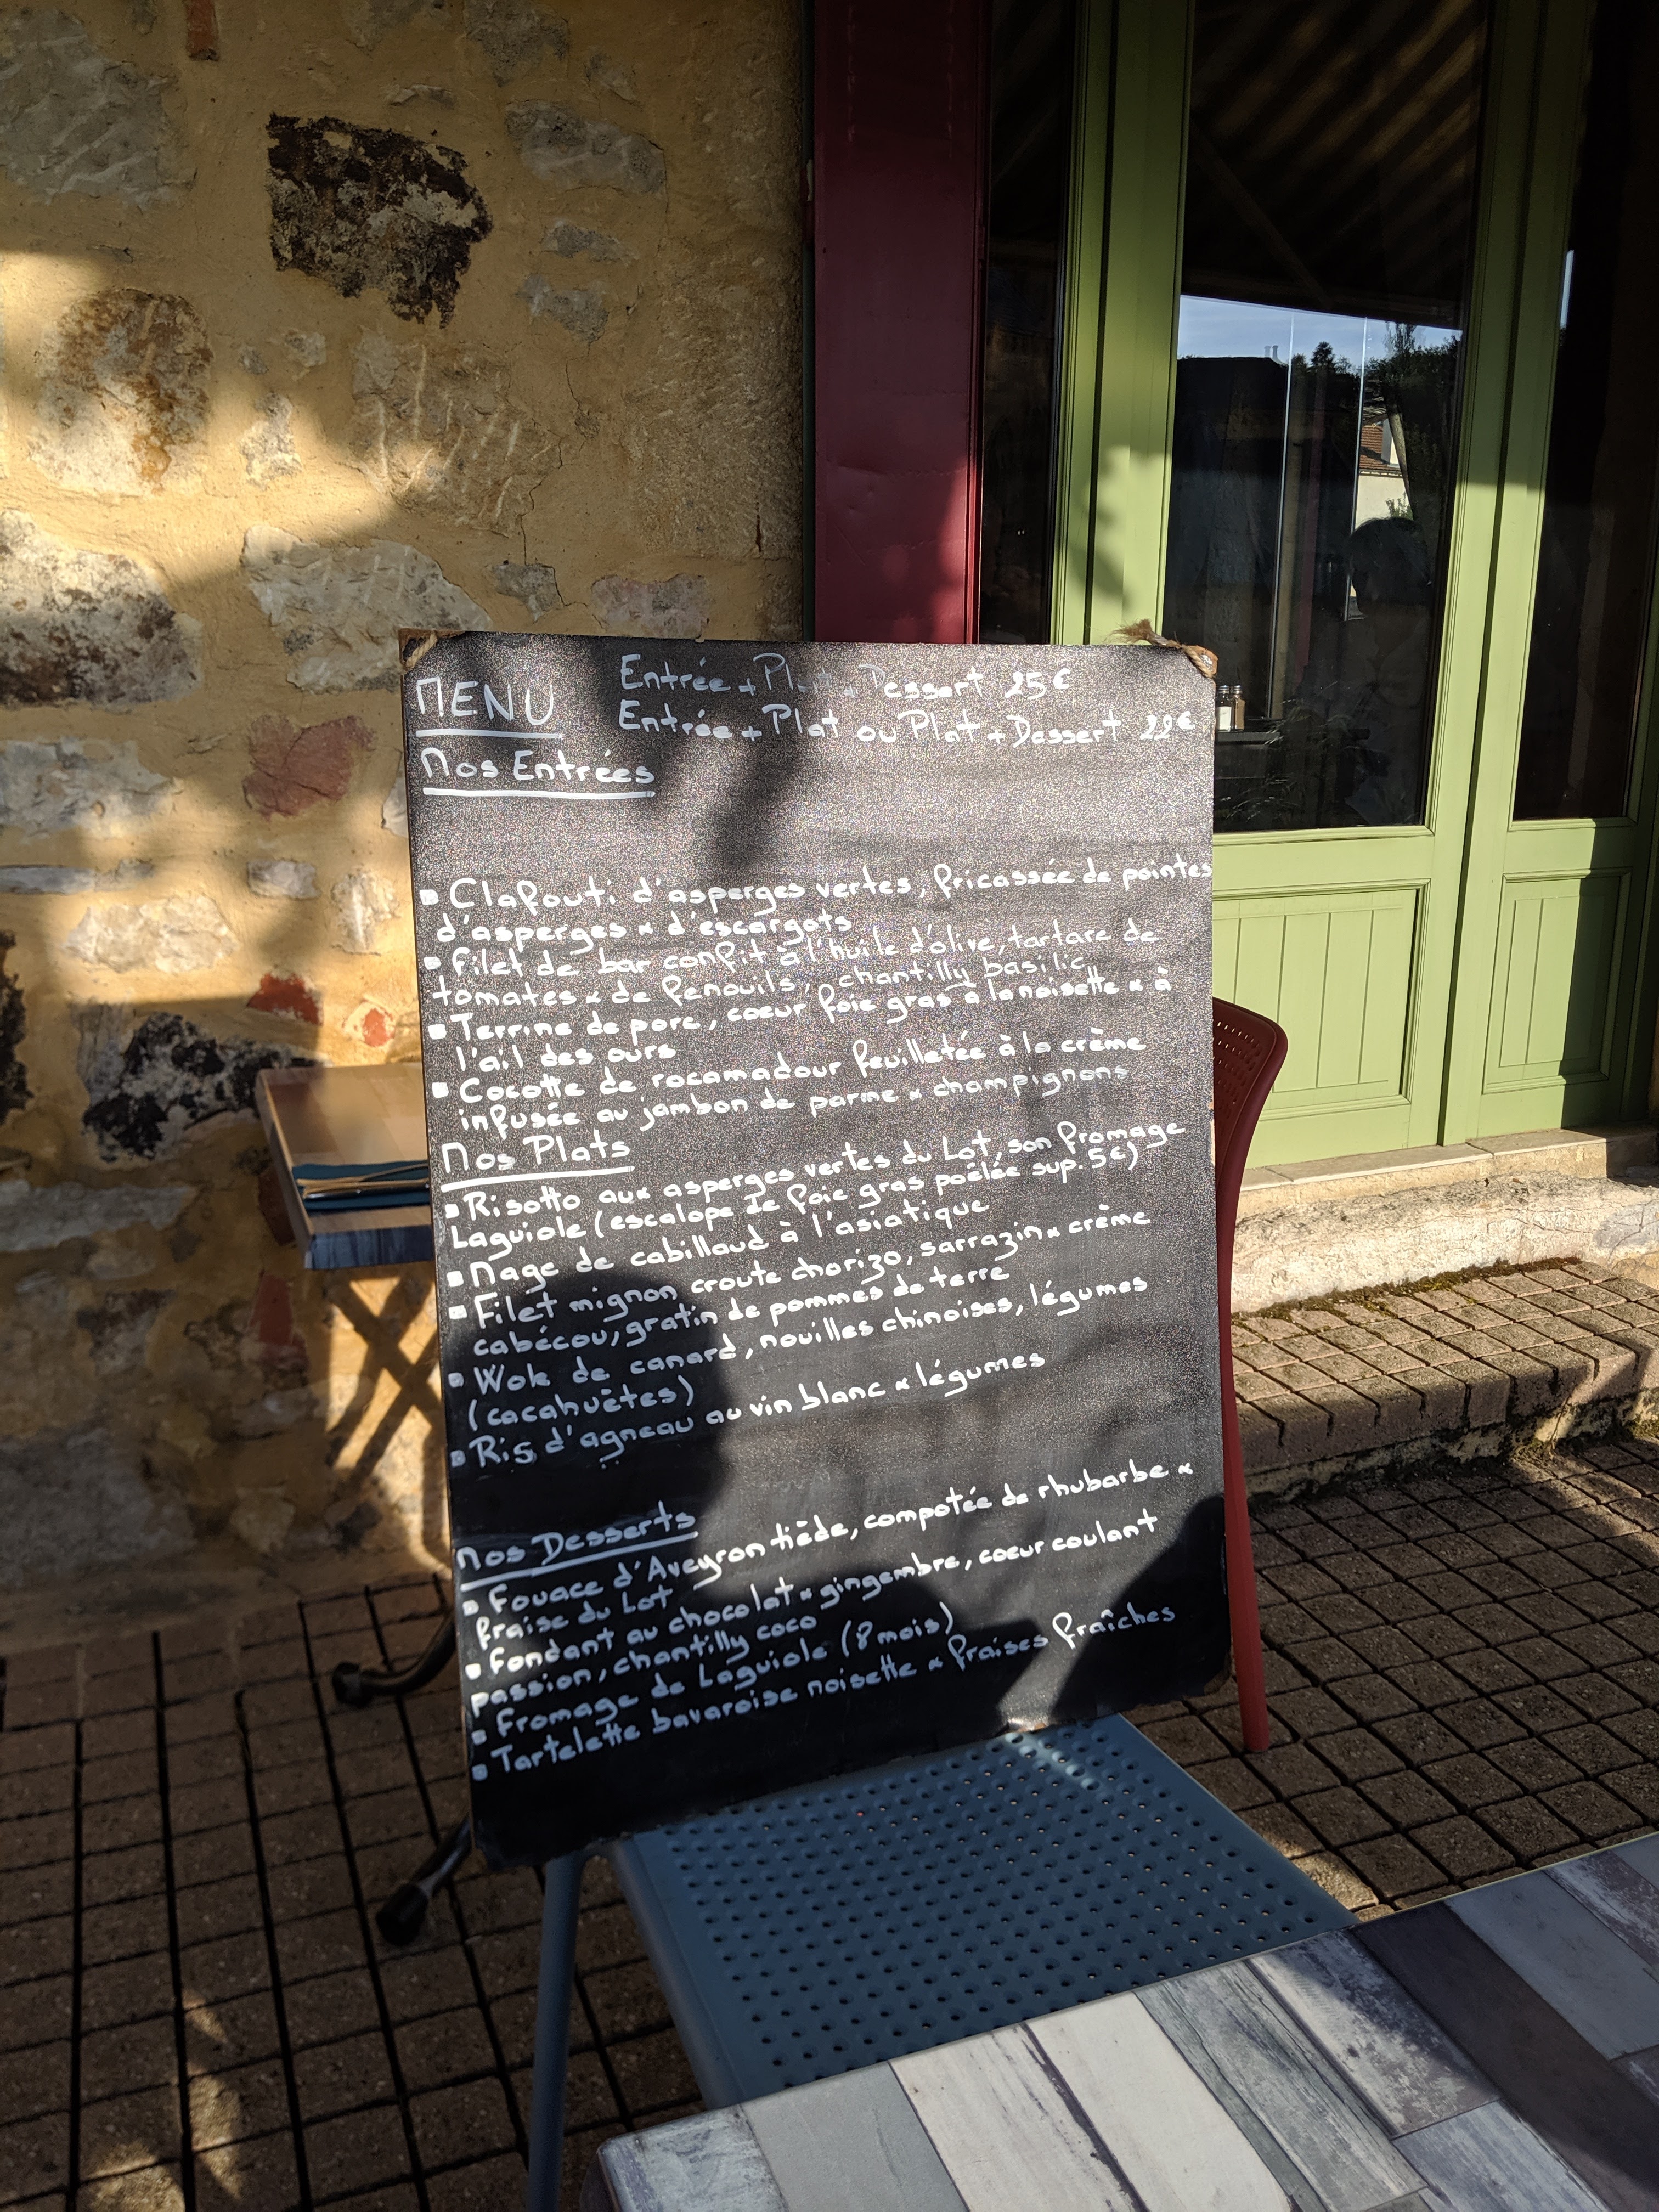 MENU
Entrée + Plat + Dessert 25€
Entrée + Plat ou Plat + Dessert 22€
Nos Entrées
▪ Clafouti d'asperges vertes, fricassée de pointes
d'asperges & d'escargots
▪ filet de bar confit à l'huile d'olive, tartare de
tomates & de fenouils, chantilly basilic
▪ Terrine de porc, coeur foie gras à la noisette & à
l'ail des ours
▪ Cocotte de rocamadour feuilletée à la crème
infusée au jambon de parme & champignons
Nos Plats
▪ Risotto aux asperges vertes du Lot, son fromage
Laguiole (escalope de foie gras poêlée sup. 5€)
▪ Nage de cabillaud à l'asiatique
▪ Filet mignon croute chorizo, sarrazin & crème
cabécou, gratin de pommes de terre
▪ Wok de canard, nouilles chinoises, légumes
(cacahuètes)
▪ Ris d'agneau au vin blanc & légumes
Nos Desserts
▪ Fouace d'Aveyron tiède, compotée de rhubarbe &
fraise du Lot
▪ Fondant au chocolat & gingembre, coeur coulant
passion, chantilly coco
▪ Fromage de Laguiole (8 mois)
▪ Tartelette bavaroise noisette & fraises fraîches